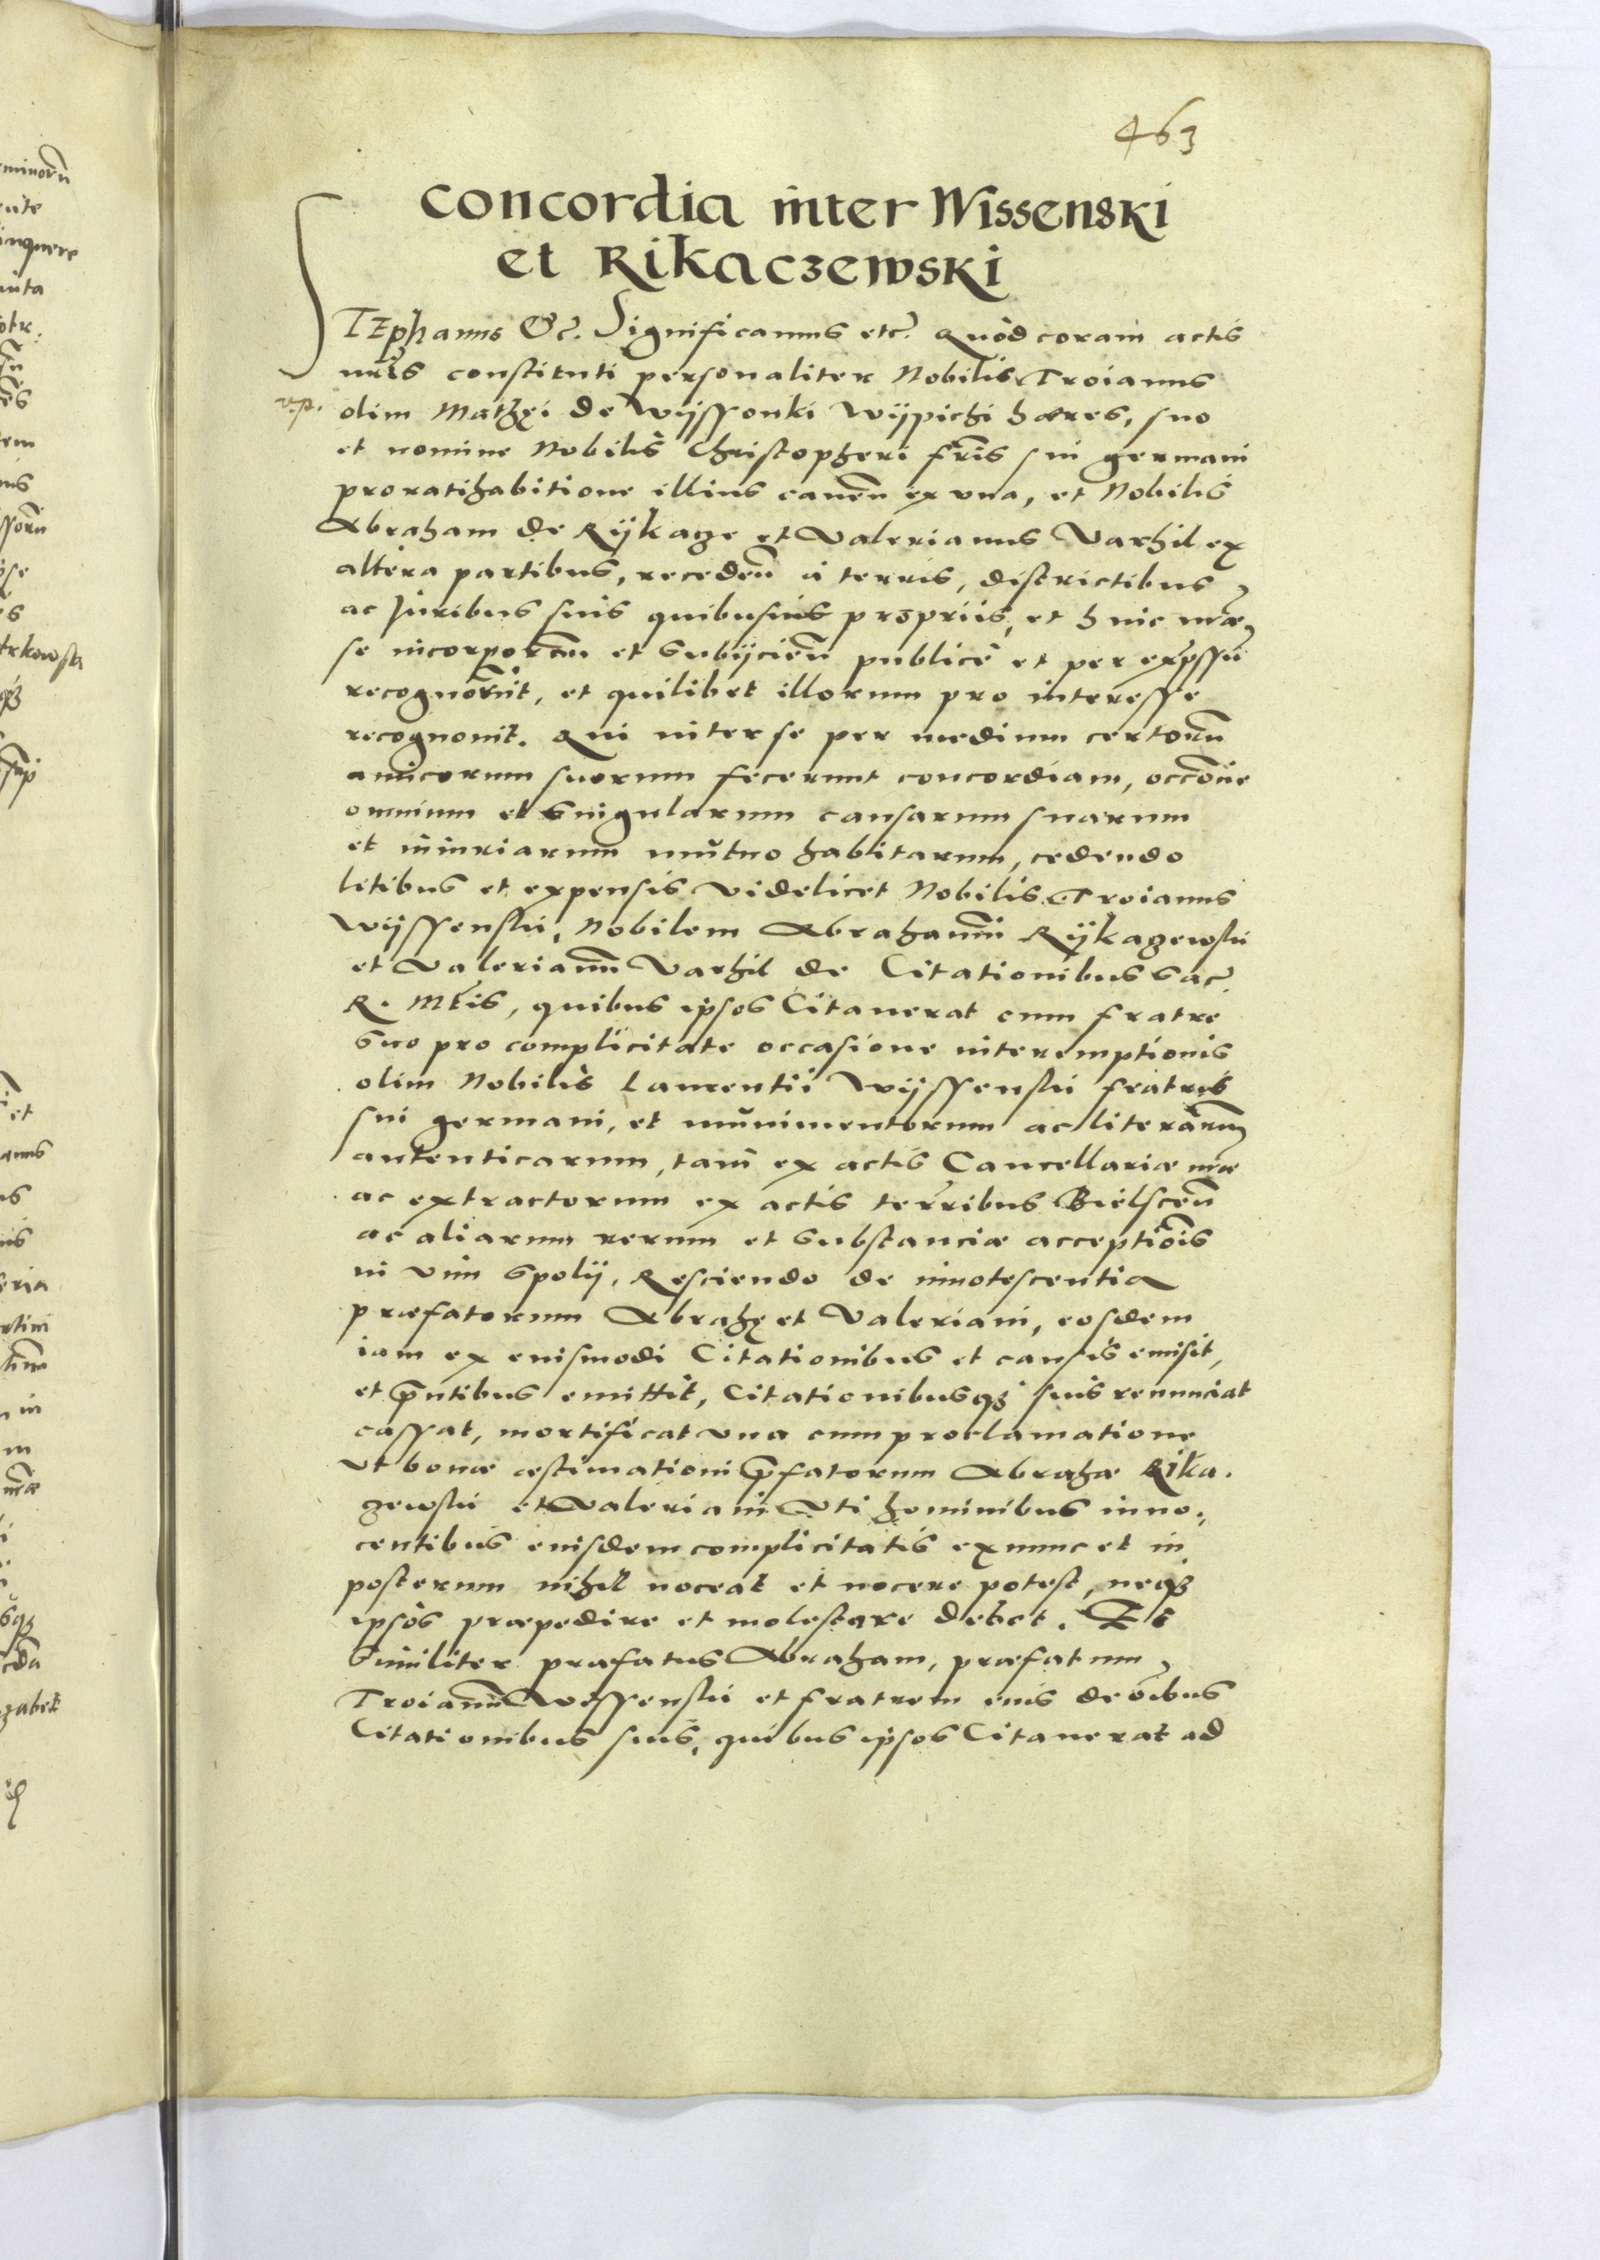 463
Concordia inter Wissenski
et Rikaczewski
STEphanus Etc. Significamus etc. Quod coram actis
nr̃is constituti personaliter Nobilis Troianus
olim Mathęi de Wÿssonki Wÿpichi hæres, suo
et nomine Nobilis Christopheri fr̃is sui germani
pro ratihabitione illius caven̄ ex una, et Nobilis
Abraham de Rÿkacze et Valerianus Varhil ex
altera partibus, receden̄ à terris, districtibus
ac Juribus suis quibusvis proprijs, et huic nr̃æ
se incorporan̄ et subijcien̄ publicè et per expssũ
recognor̃unt, et quilibet illorum pro interesse
recognovit. Qui inter se per medium certorum̄
amicorum suorum fecerunt concordiam, occōne
omnium et singularum causarum suarum
et iniuriarum mutuo habitarum, cedendo
litibus et expensis videlicet Nobilis Troianus
Wÿssenski, Nobilem Abrahamū Rÿkaczewski
et Valerianū Varhil de Citationibus Sac.
R. Mt̃is, quibus ipsos Citaverat cum fratre
suo pro complicitate occasione interemptionis
olim Nobilis Laurentii Wÿssenski fratris
sui germani, et munimentorum ac literarum
autenticarum, tam ex actis Cancellariæ nr̃æ
ac extractorum ex actis terr̃ribus Bielscen̄
ac aliarum rerum et substanciæ acceptiōis
in vim spolij, Resciendo de innotescentia
præfatorum Abrahę et Valeriani, eosdem
iam ex eiusmodi Citationibus et causis emisit,
et p̄ntibus emittit, Citationibusq3 suis renunciat
cassat, mortificat una cum proclamatione
ut bonæ æstimationi p̄fatorum Abrahæ Rika.
czewski et Valeriani Uti hominibus inno.
centibus eiusdem complicitatis ex nunc et in
posterum nihil noceat et nocere potest, neq3
ipsos præpedire et molestare debet. Et
similiter præfatus Abraham, præfatum
Troianū Wissenski et fratrem eius de oībus
Citationibus suis, quibus ipsos Citaverat ad